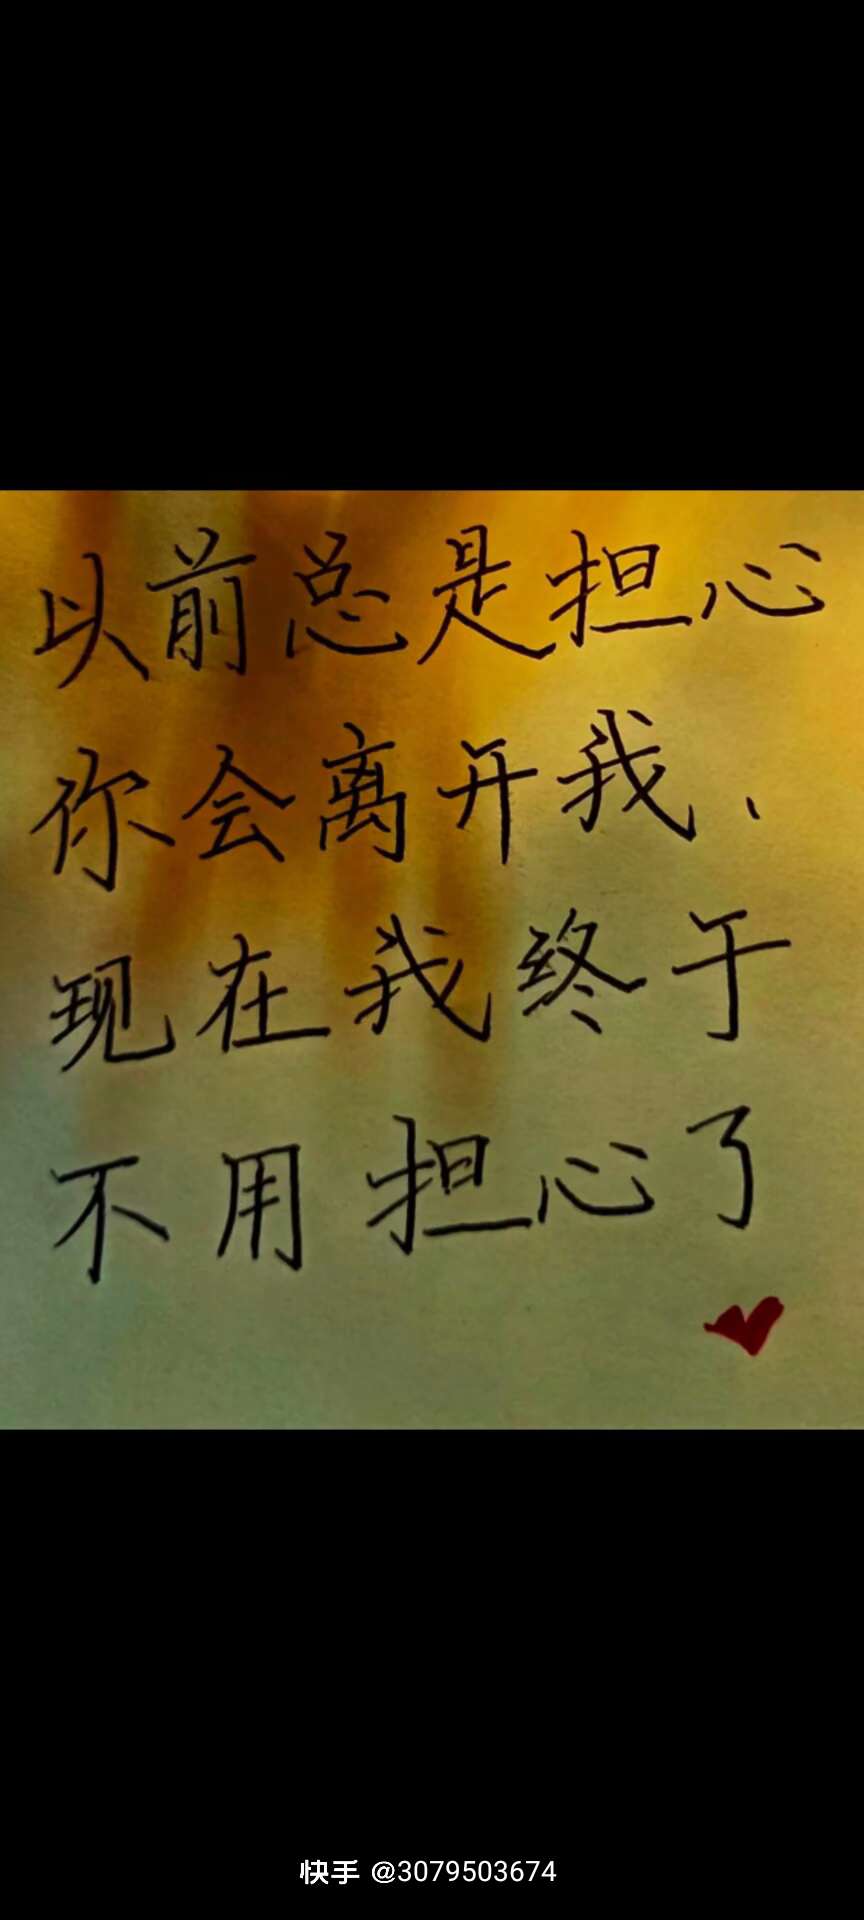 以前总是担心
你会离开我、
现在我终于
不用担心了
快手 @3079503674